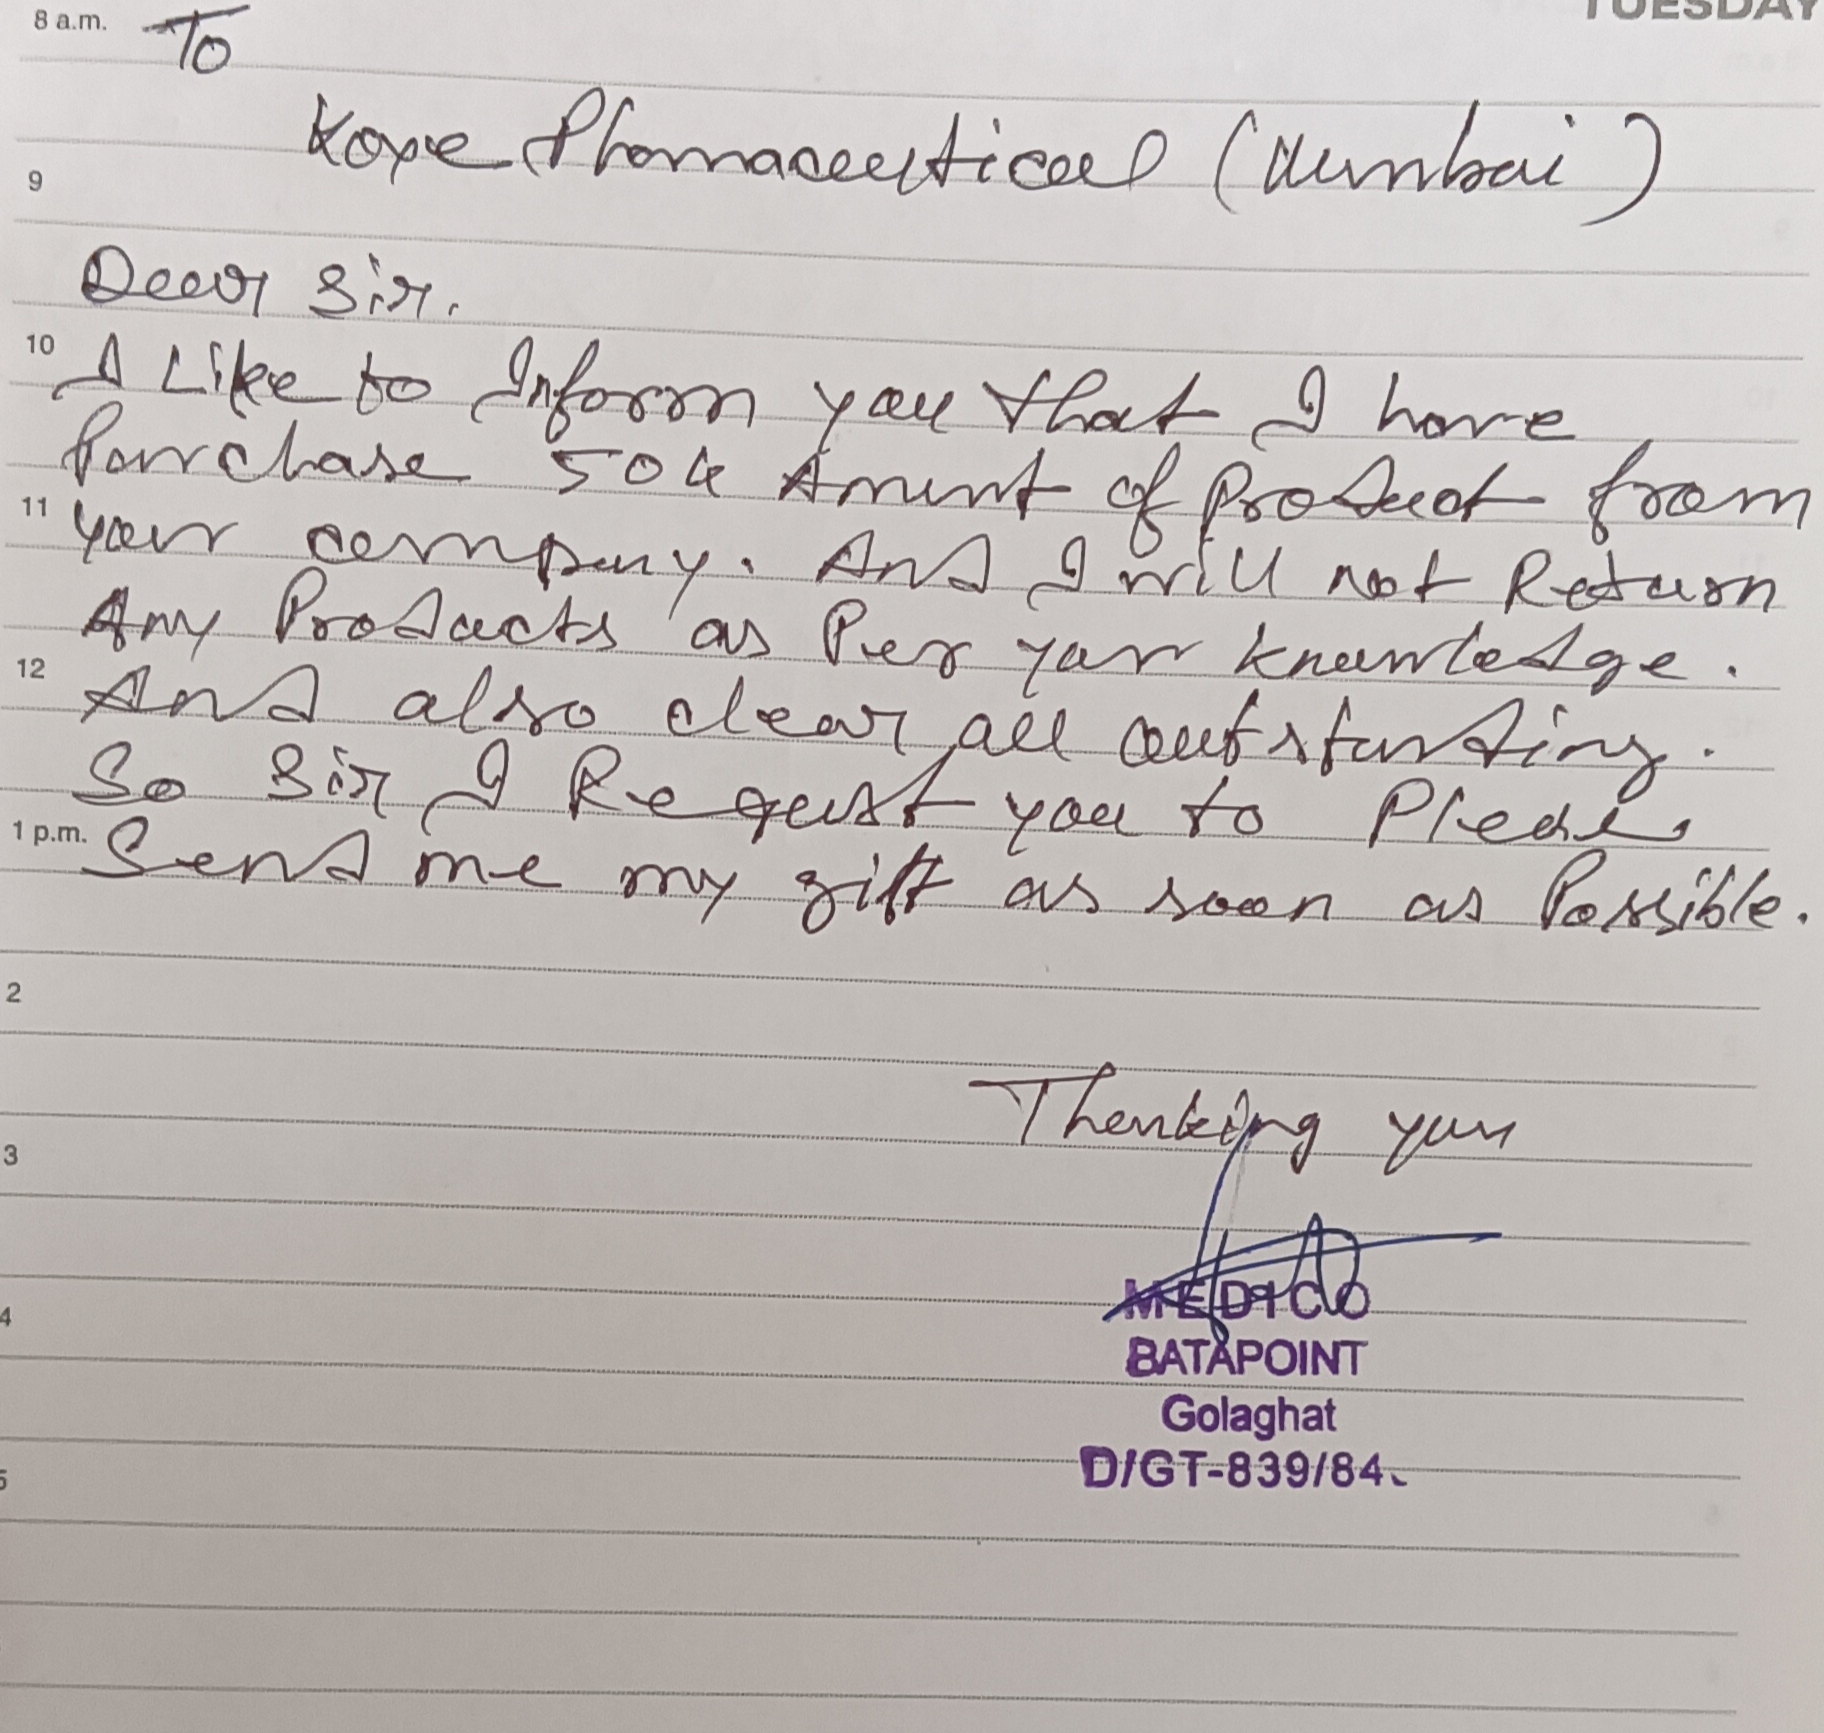 TUESDAY
8 a.m. To
Kope Phamaceutical (Mumbai)
9
Dear Sir.
10
I Like to Inform you that I have
Purchase 50k Amunt of Product from
11
your company. And I will not Return
Any Products as Per your knowledge.
12
And also clear all outstanding.
So Sir I Request you to Please
1 p.m.
Send me my gift as soon as Possible.
2
Thenking you
3
MEDICO
4
BATAPOINT
Golaghat
D/GT-839/84
5